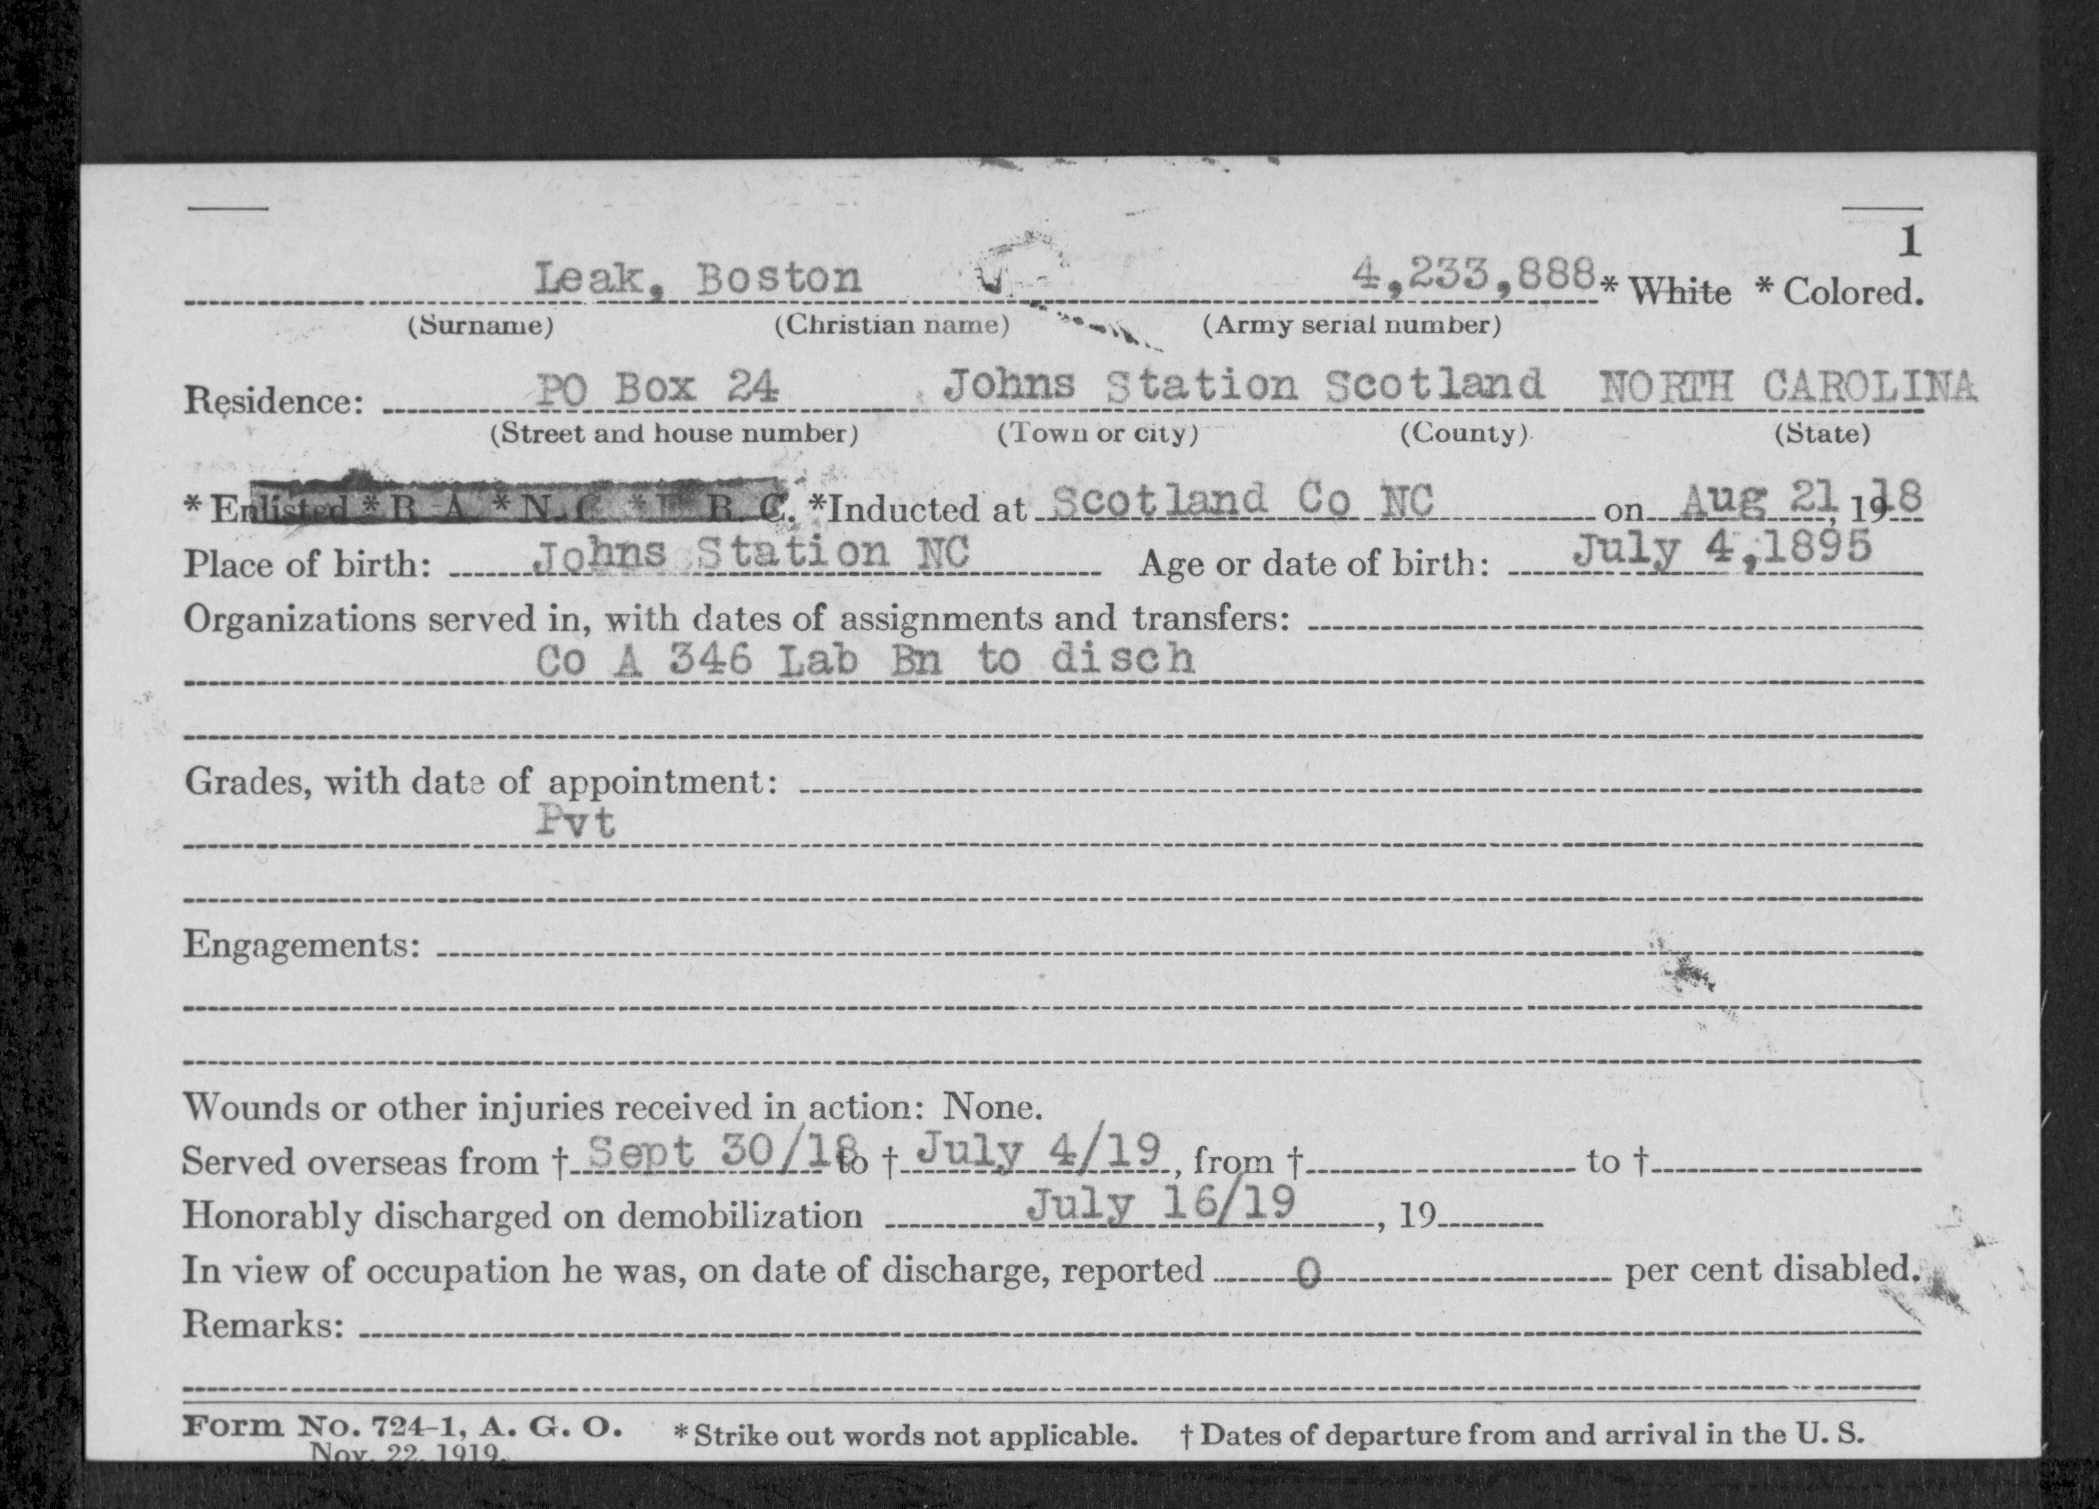 1
Leak, Boston 4,233,888 * White * Colored.
(Surname) (Christian name) (Army serial number)
Residence: PO Box 24 Johns Station Scotland NORTH CAROLINA
(Street and house number) (Town or city) (County) (State)
* Enlisted * R. A. * N. G. * E. R. C. *Inducted at Scotland Co NC on Aug 21, 1918
Place of birth: Johns Station NC Age or date of birth: July 4, 1895
Organizations served in, with dates of assignments and transfers:
Co A 346 Lab Bn to disch
Grades, with date of appointment:
Pvt
Engagements:
Wounds or other injuries received in action: None.
Served overseas from † Sept 30/18 to † July 4/19, from † to †
Honorably discharged on demobilization July 16/19, 19
In view of occupation he was, on date of discharge, reported 0 per cent disabled.
Remarks:
Form No. 724-1, A. G. O. * Strike out words not applicable. † Dates of departure from and arrival in the U. S.
Nov. 22, 1919.